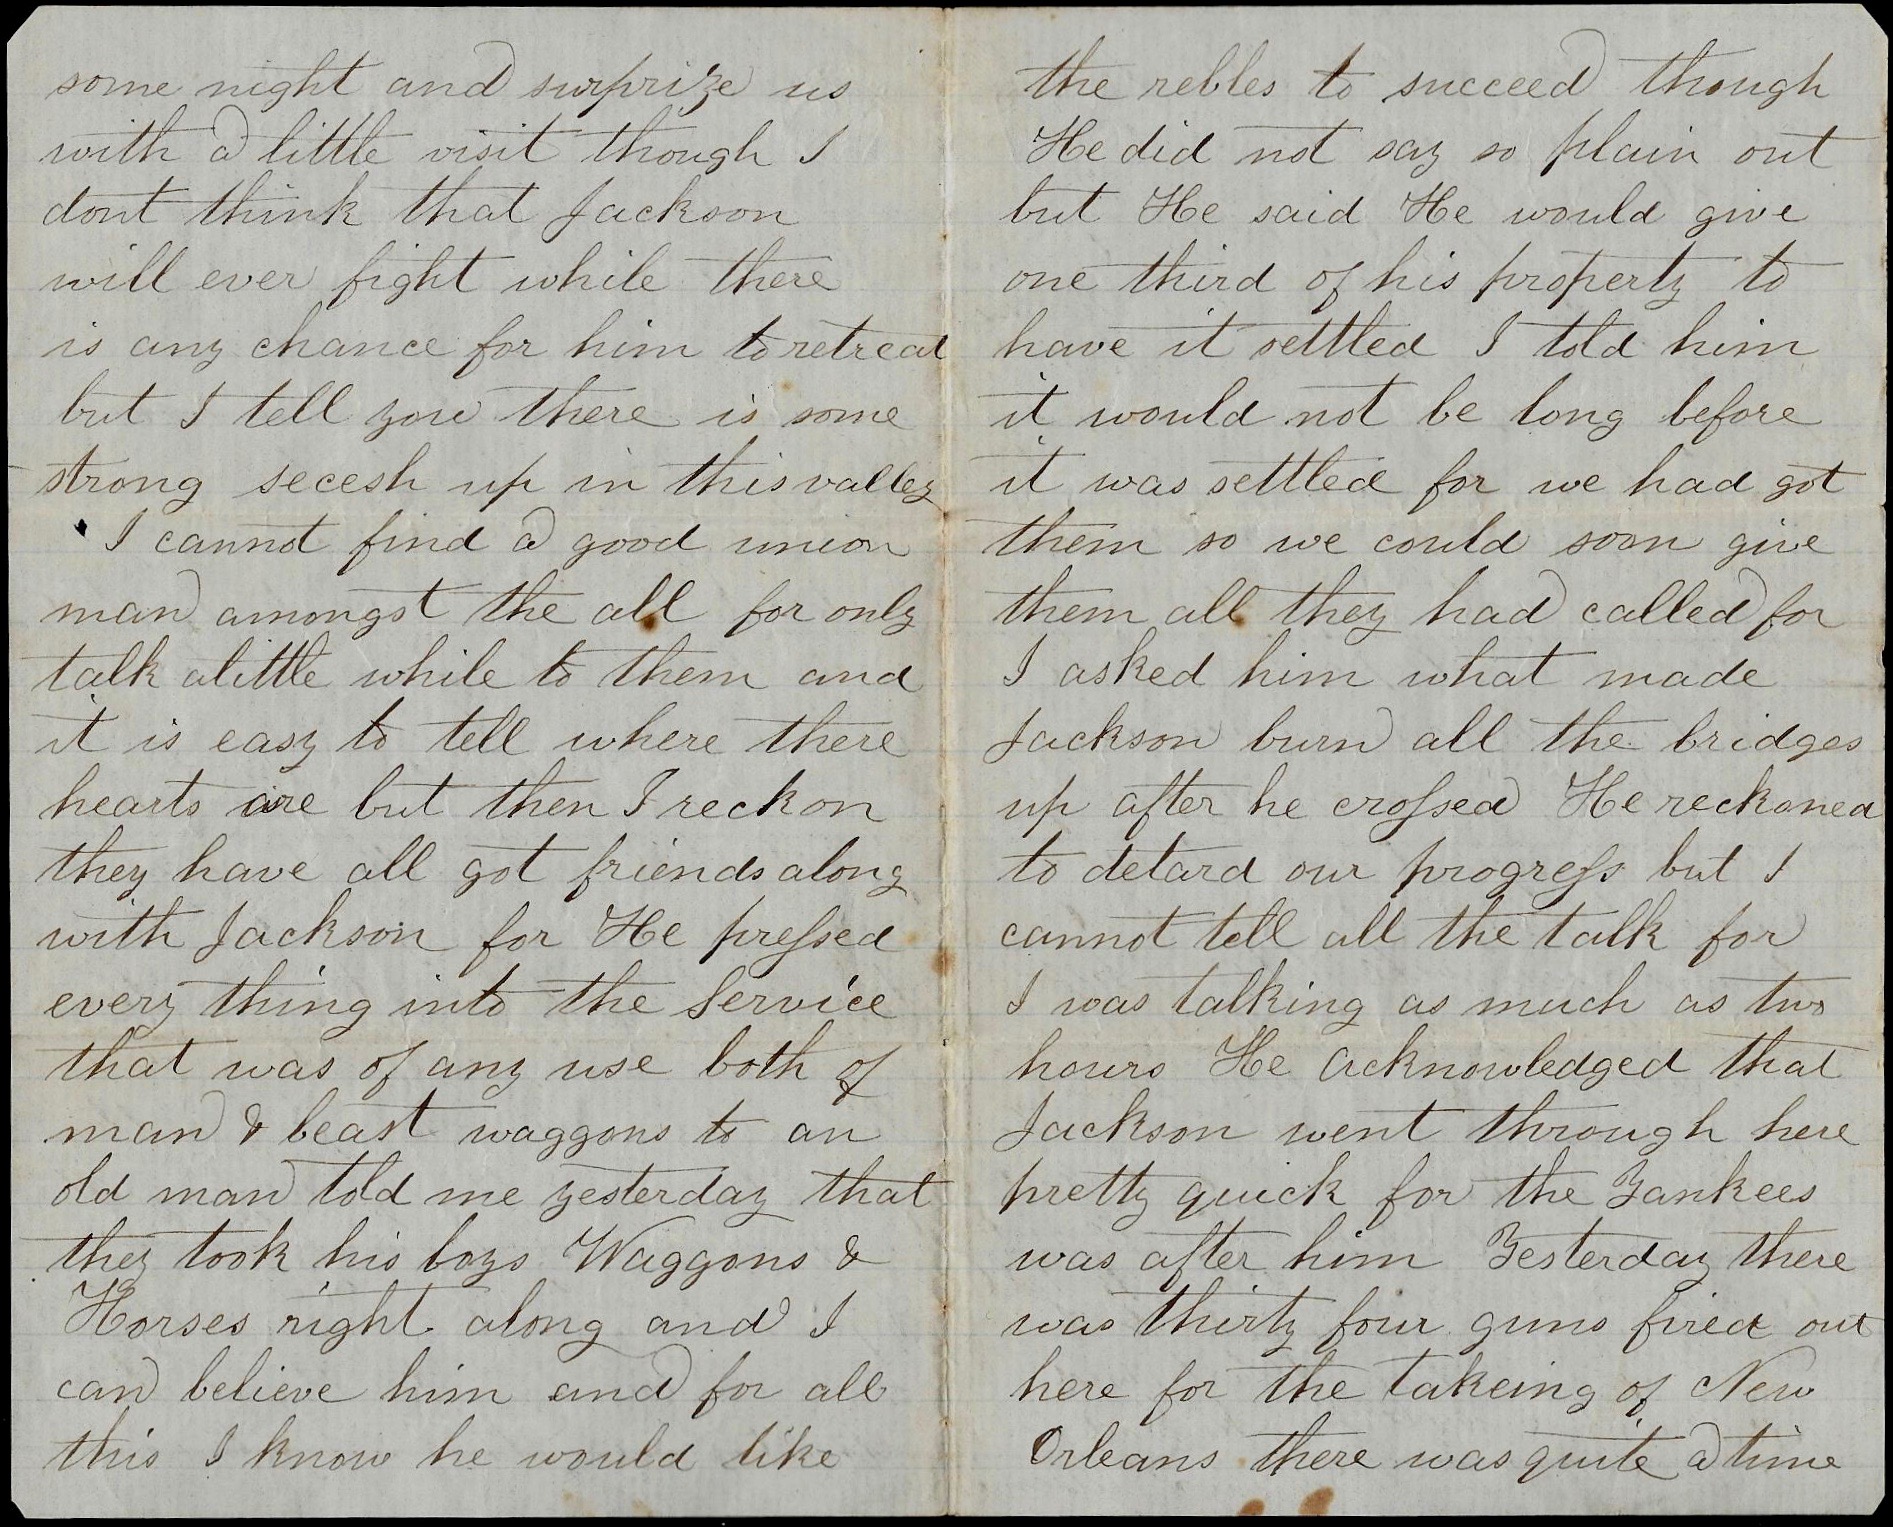 some night and surprize us
with a little visit though I
dont think that Jackson
will ever fight while there
is any chance for him to retreat
but I tell you there is some
strong secesh up in this valley
I cannot find a good union
man amongst the all for only
talk alittle while to them and
it is easy to tell where there
hearts are but then I reckon
they have all got friends along
with Jackson for He pressed
every thing into the Service
that was of any use both of
man & beast waggons to an
old man told me yesterday that
they took his boys Waggons &
Horses right along and I
can believe him and for all
this I know he would like
the rebles to succeed though
He did not say so plain out
but He said He would give
one third of his property to
have it settled I told him
it would not be long before
it was settled for we had got
them so we could soon give
them all they had called for
I asked him what made
Jackson burn all the bridges
up after he crossed He reckoned
to detard our progress but I
cannot tell all the talk for
I was talking as much as two
hours He acknowledged that
Jackson went through here
pretty quick for the Yankees
was after him Yesterday there
was thirty four guns fired out
here for the takeing of New
Orleans there was quite a time